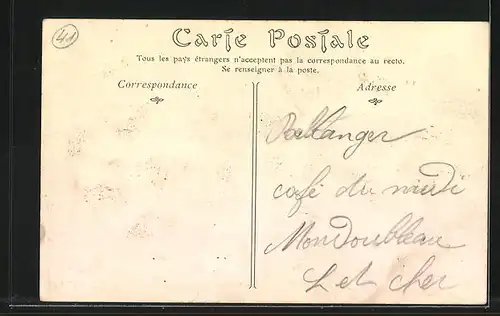 41
Carte Postale
Tous les pays étrangers n'acceptent pas la correspondance au recto.
Se renseigner à la poste.
Correspondance
Adresse
café du midi
Mondoubleau
L et cher